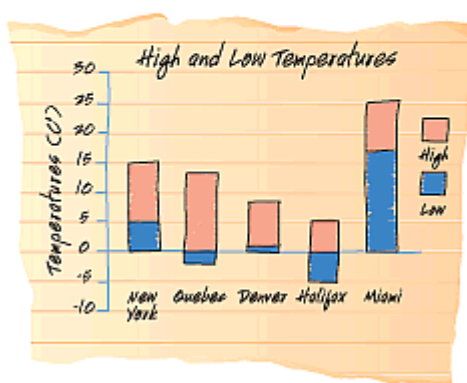 High and Low Temperatures
Temperatures (C°)
30
25
20
15
10
5
0
-5
-10
New York
Quebec
Denver
Halifax
Miami
High
Low